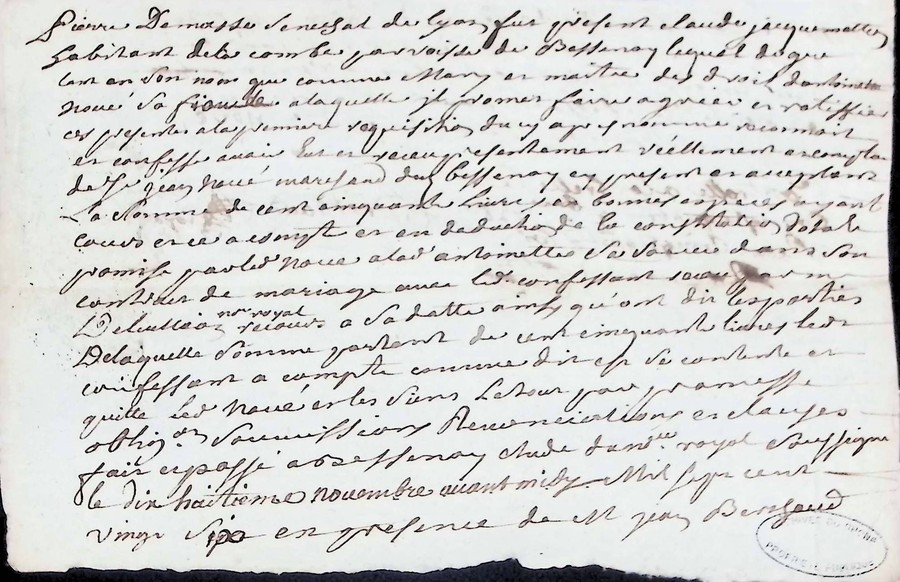 pierre Demasse Senechal de lyon fut présent claude jacquemetton
habitant dela combe parroisse de Bessenay lequel de gre
tant en son nom que comme Mary et maitre des droits dantoinette
Noué sa a laquelle jl promet faire agréer et ratiffier
ces presentes ala premiere requisition du cy apres nommé reconnait
et confesse avoir Eut et receu presentement réellement et comptant
de Sr jean Noué marchand dud bessenay cy present et acceptant
La Somme de cent cinquant Livres en bonnes especes ayant
cours et ce a compte et en deduction de la constitution dotale
promise par led Noué alad antoinette Sa dans son
contrat de mariage avec led confessant receu par me
nore royal a Sa datte ainsy qu'ont dit les parties
De laquelle Somme partant de cent cinquant livres led
confessant a compte comme dit est Se contente et
quitte led Noué et les siens Le tout par promesse
obligon Soumissions Renonciations et clauses
fait et passé a bessenay etude du nore royal Soussigné
le dix huitieme novembre avant midy Mil sept cent
vingt Six en presence de Mr jean